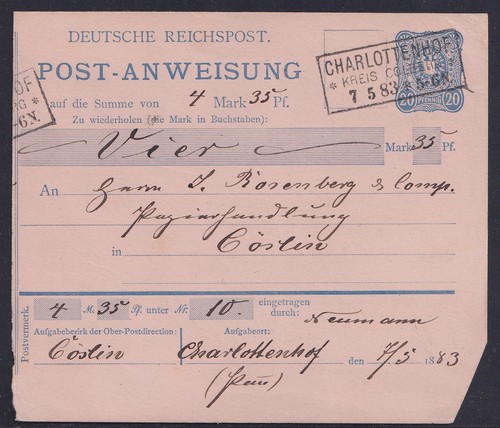 DEUTSCHE REICHSPOST.
POST-ANWEISUNG
CHARLOTTENHOF
* KREIS
7 5 83 * 5-6N.
20 PFENNIG 20
OF
*
-6N.
auf die Summe von 4 Mark 35 Pf.
Zu wiederholen (die Mark in Buchstaben):
Vier Mark 35 Pf.
An Herrn J. Rosenberg & Comp.
Papierhandlung
in Cöslin
Postvermerk.
4 M. 35 Pf. unter Nr. 10. eingetragen
durch: Neumann
Aufgabebezirk der Ober-Postdirection: Aufgabeort:
Cöslin Charlottenhof den 7/5 1883